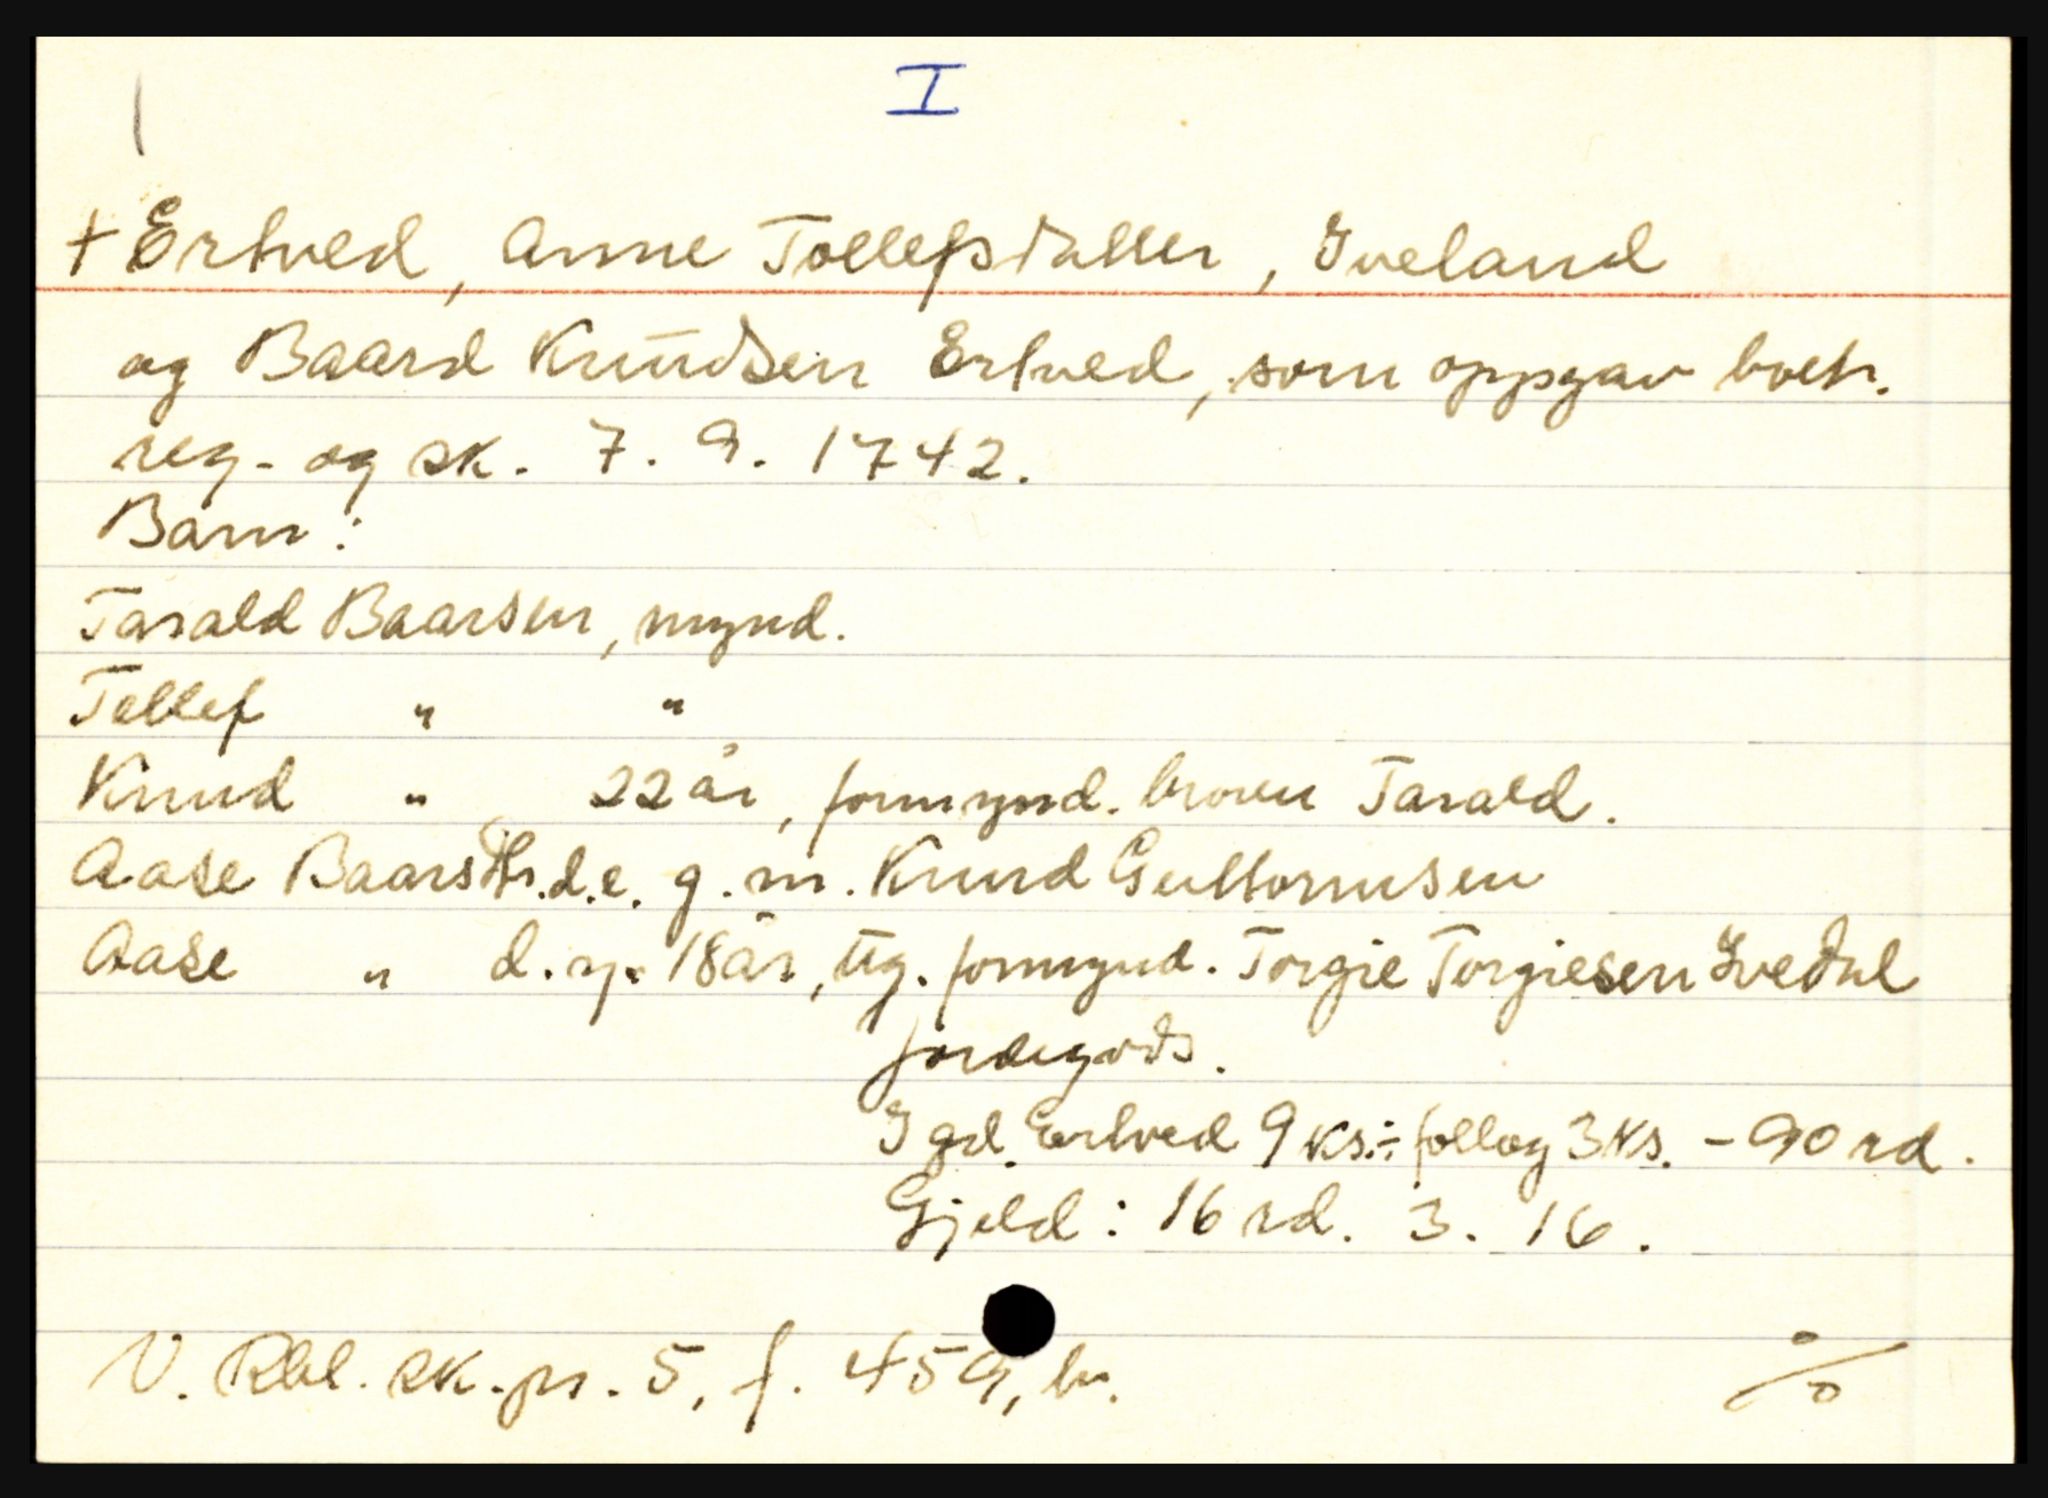 I
+ Ertved, Anne Tollefsdatter, Iveland
og Baard Knudsen Ertved, som oppgav boet.
reg. og sk. 7. 9. 1742.
Barn:
Tarald Baarsen, mynd.
Tellef " "
Knud " 22 år, formynd. broren Tarald.
Aase Baarsdtr. d.e. g.m. Knud Guttormsen
Aase " d.y. 18 år, ug. formynd. Torgie Torgiesen Ivedal
Jordegods.
I gd. Ertved 9 ks. ÷ follog 3 ks. - 90 rd.
Gjeld: 16 rd. 3. 16.
V. Rbl. sk. pr. 5, f. 459, b.
%